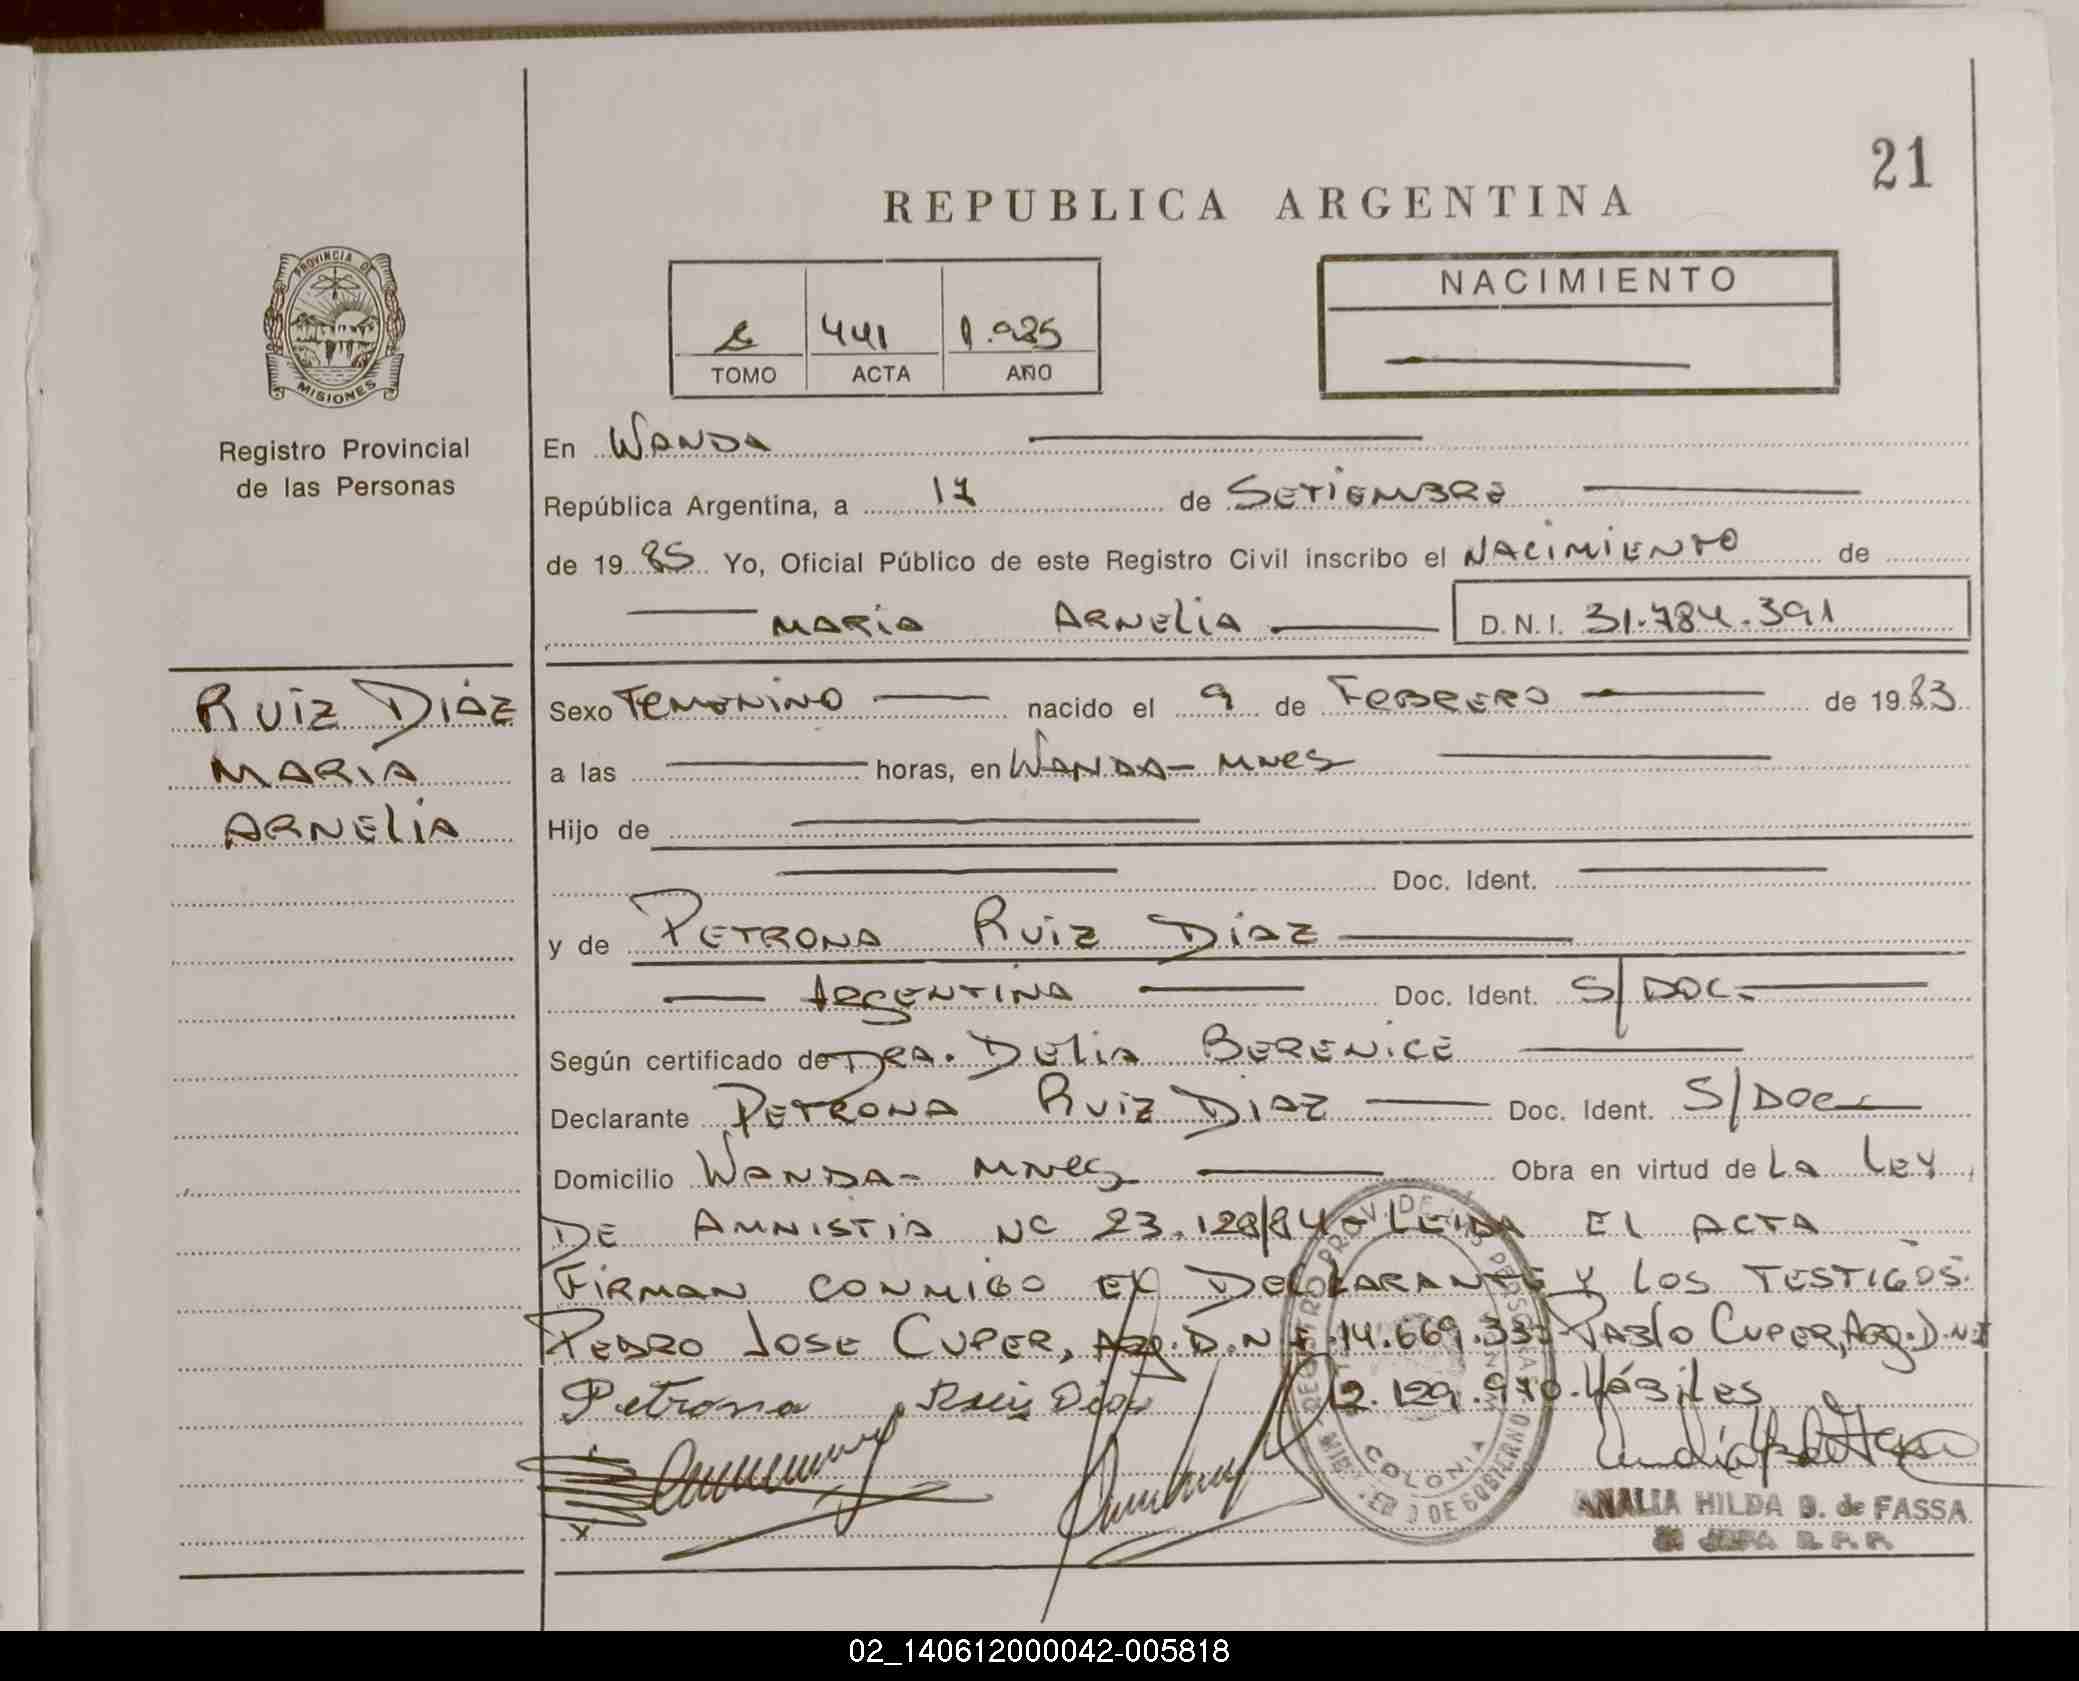 21
REPUBLICA ARGENTINA
PROVINCIA DE
MISIONES
Registro Provincial
de las Personas
NACIMIENTO
441 1.985
TOMO ACTA AÑO
En WANDA
República Argentina, a 17 de SETIEMBRE
de 1985 Yo, Oficial Público de este Registro Civil inscribo el NACIMIENTO de
MARIA ARNELIA D.N.I. 31.784.391
RUIZ DIAZ
MARIA
ARNELIA
Sexo FEMENINO nacido el 9 de FEBRERO de 1983
a las horas, en WANDA- MNES
Hijo de
Doc. Ident.
y de PETRONA RUIZ DIAZ
ARGENTINA Doc. Ident. S/DOC.
Según certificado de DRA. DELIA BERENICE
Declarante PETRONA RUIZ DIAZ Doc. Ident. S/DOC
Domicilio WANDA- MNES Obra en virtud de LA LEY
DE AMNISTIA NC 23.128/84- LEIDA EL ACTA
FIRMAN CONMIGO EL DECLARANTE Y LOS TESTIGOS.
PEDRO JOSE CUPER, ARG. D.N.I. 14.669. PABLO CUPER, ARG. D.N.I
12.129.970. HÁBILES
Petrona Ruiz Diaz
COLONIA
ANALIA HILDA B. de FASSA
JEFA R.P.P.
02_140612000042-005818